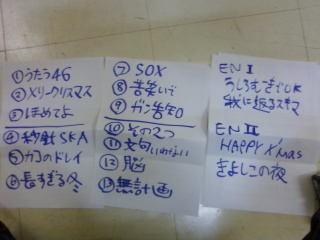 ①うたう46
②メリークリスマス
③ほめてよ
④秒針SKA
⑤カコのドレイ
⑥長すぎる冬
⑦SOX
⑧苦笑いで
⑨ガン告知
⑩その2つ
⑪文句いわない
⑫脳
⑬無計画
EN I
うしろむきでOK
我に返るスキマ
EN II
HAPPY X'mas
きよしこの夜